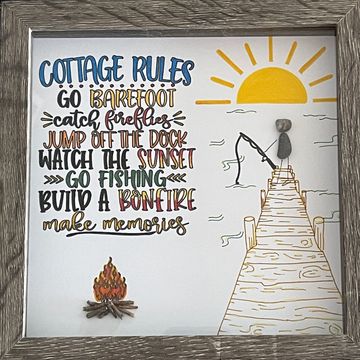 COTTAGE RULES
GO BAREFOOT
catch fireflies
JUMP OFF THE DOCK
WATCH THE SUNSET
GO FISHING
BUILD A BONFIRE
make memories